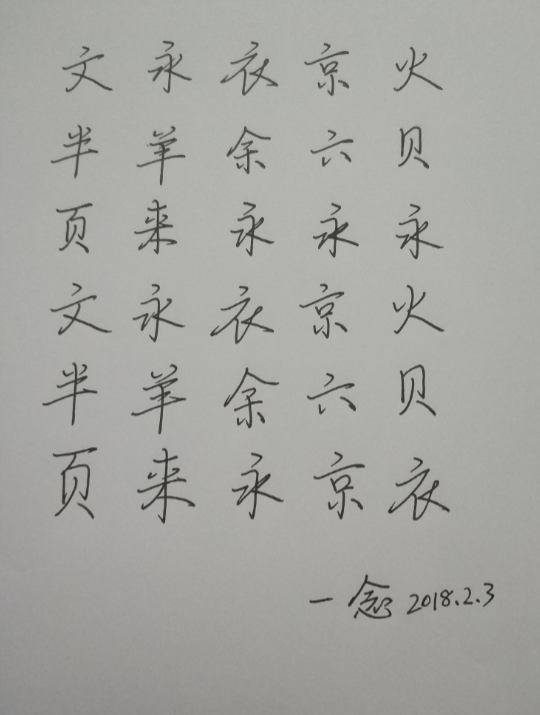 文永衣京火
半羊余六贝
页来永永永
文永衣京火
半羊余六贝
页来永京衣
一念 2018.2.3